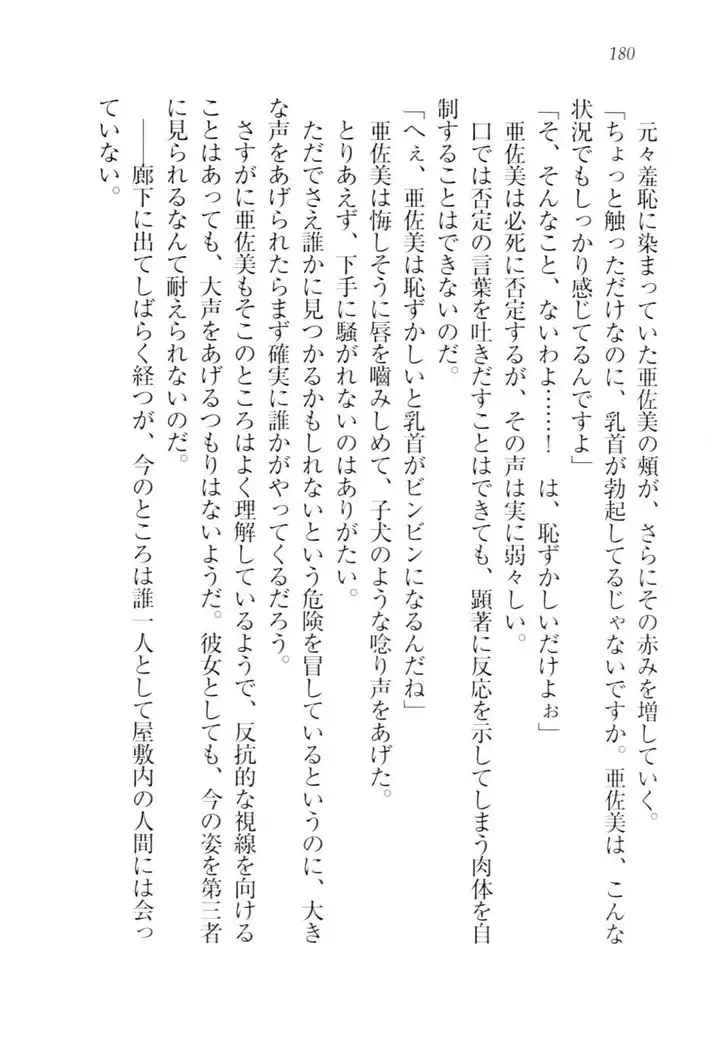 180
元々羞恥に染まっていた亜佐美の頬が、さらにその赤みを増していく。
「ちょっと触っただけなのに、乳首が勃起してるじゃないですか。亜佐美は、こんな
状況でもしっかり感じてるんですよ」
「そ、そんなこと、ないわよ……！　は、恥ずかしいだけよぉ」
亜佐美は必死に否定するが、その声は実に弱々しい。
口では否定の言葉を吐きだすことはできても、顕著に反応を示してしまう肉体を自
制することはできないのだ。
「へぇ、亜佐美は恥ずかしいと乳首がビンビンになるんだね」
亜佐美は悔しそうに唇を噛みしめて、子犬のような唸り声をあげた。
とりあえず、下手に騒がれないのはありがたい。
ただでさえ誰かに見つかるかもしれないという危険を冒しているというのに、大き
な声をあげられたらまず確実に誰かがやってくるだろう。
さすがに亜佐美もそこのところはよく理解しているようで、反抗的な視線を向ける
ことはあっても、大声をあげるつもりはないようだ。彼女としても、今の姿を第三者
に見られるなんて耐えられないのだ。
――廊下に出てしばらく経つが、今のところは誰一人として屋敷内の人間には会っ
ていない。